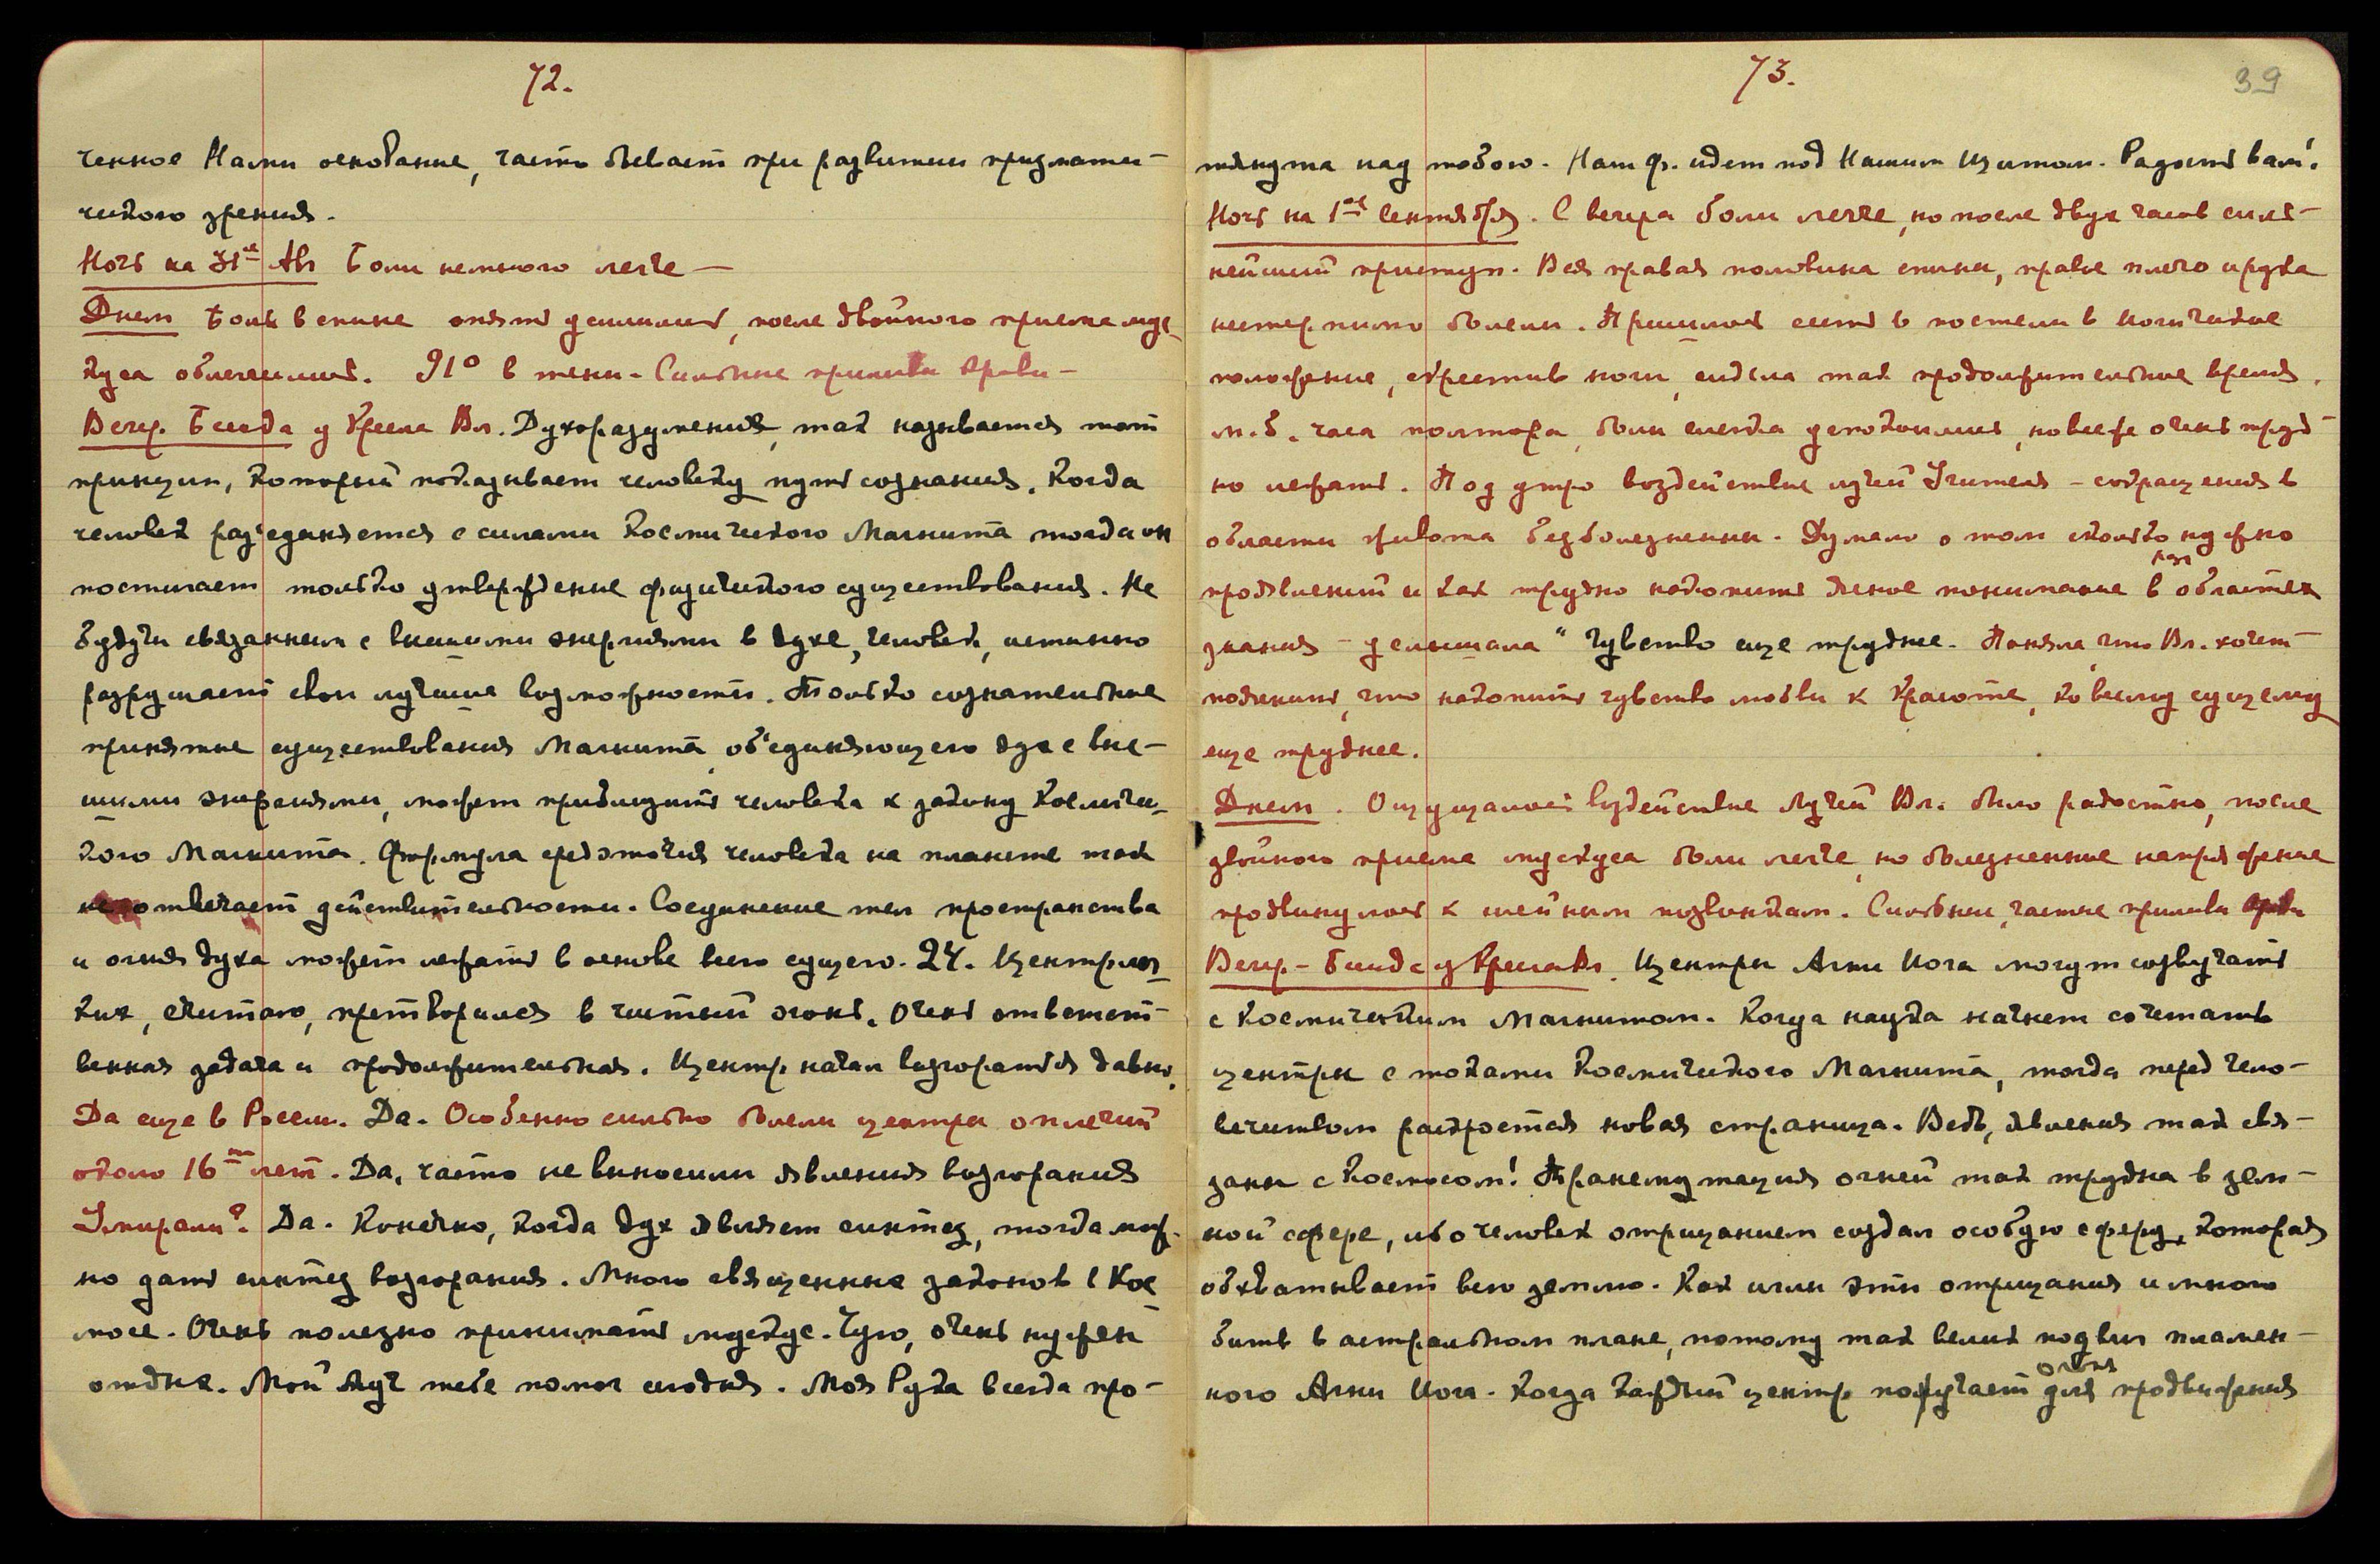 72.
ченное Нами основание, часто бывает при развитии призмати-
ческого зрения.
Ночь на 31ое Авг Боли немного легче —
Днем Боль в спине опять усилилась, после двойного приема мус-
куса облегчилась. 91° в тени. Сильные приливы крови —
Вечер. Беседа у Кресла Вл. Духоразумения, так называется тот
принцип, который показывает человеку путь сознания. Когда
человек раз'единяется с силами Космического Магнита тогда он
постигает только утверждение физического существования. Не
будучи связанным с высшими энергиями в духе, человек, истинно
разрушает свои лучшие возможности. Только сознательное
принятие существования Магнита, об'единяющего дух с выс-
шими энергиями, может приблизить человека к закону Косmиче-
кого Магнита. Формула средоточия человека на планете так
не отвечает действительности. Соединение тел пространства
и огня духа может лежать в основе всего сущего. 24. Центр лег-
ких, считаю, претворился в чистый огонь. Очень ответст-
венная задача и продолжительная. Центр начал возгораться давно.
Да еще в России. Да. Особенно сильно болели центры оплечий
около 16ти лет. Да, часто не выносили явления возгорания
Умирали? Да. Конечно, когда дух являет синтез, тогда мож-
но дать синтез возгорания. Много священные законов в Кос
мосе. Очень полезно принимать мускус. Чую, очень нужен
отдых. Мой Луч тебе помог сегодня. Моя Рука всегда про-
73.
39
тянута над тобою. Наш ф. идет под Нашим Щитом. Радость вам!
Ночь на 1ое Сентября. С вечера боли легче, но после двух часов силь-
нейший приступ. Вся правая половина спины, правое плечо и рука
нестерпимо болели. Пришлось сесть в постели в иогическое
положение, скрестив ноги, сидела так продолжительное время,
м.б. часа полтора, боли слегка успокоились, но все же очень труд-
но лежать. Под утро воздействие лучей Учителя – сокращения в
области живота безболезненны. Думала о том сколько нужно
проявлений и как трудно накопить ясное понимание в раз областях
знания – услышала "чувство еще труднее. Поняла, что Вл. хочет
подчеркнуть, что накопить чувство любви к Красоте, ко всему сущему
еще труднее.
Днем. Ощущалось воздействие Лучей Вл. было радостно, после
двойного приема мускуса боли легче, но болезненное напряжение
продвинулось к шейным позвонкам. Сильные, частые приливы крови
Вечер – Беседа у Кресла Вл. Центры Агни Иога могут созвучать
с Космическим Магнитом. Когда наука начнет сочетать
центры с токами Космического Магнита, тогда перед чело-
вечеством раскроется новая страница. Ведь, явления так свя-
заны с Космосом! Трансмутация огней так трудна в зем-
ной сфере, ибо человек отрицанием создал особую сферу, которая
обхватывает всю землю. Как иглы эти отрицания и много
битв в астральном плане, потому так велик подвиг пламен-
ного Агни Иога. Когда каждый центр получает огня для продвижения